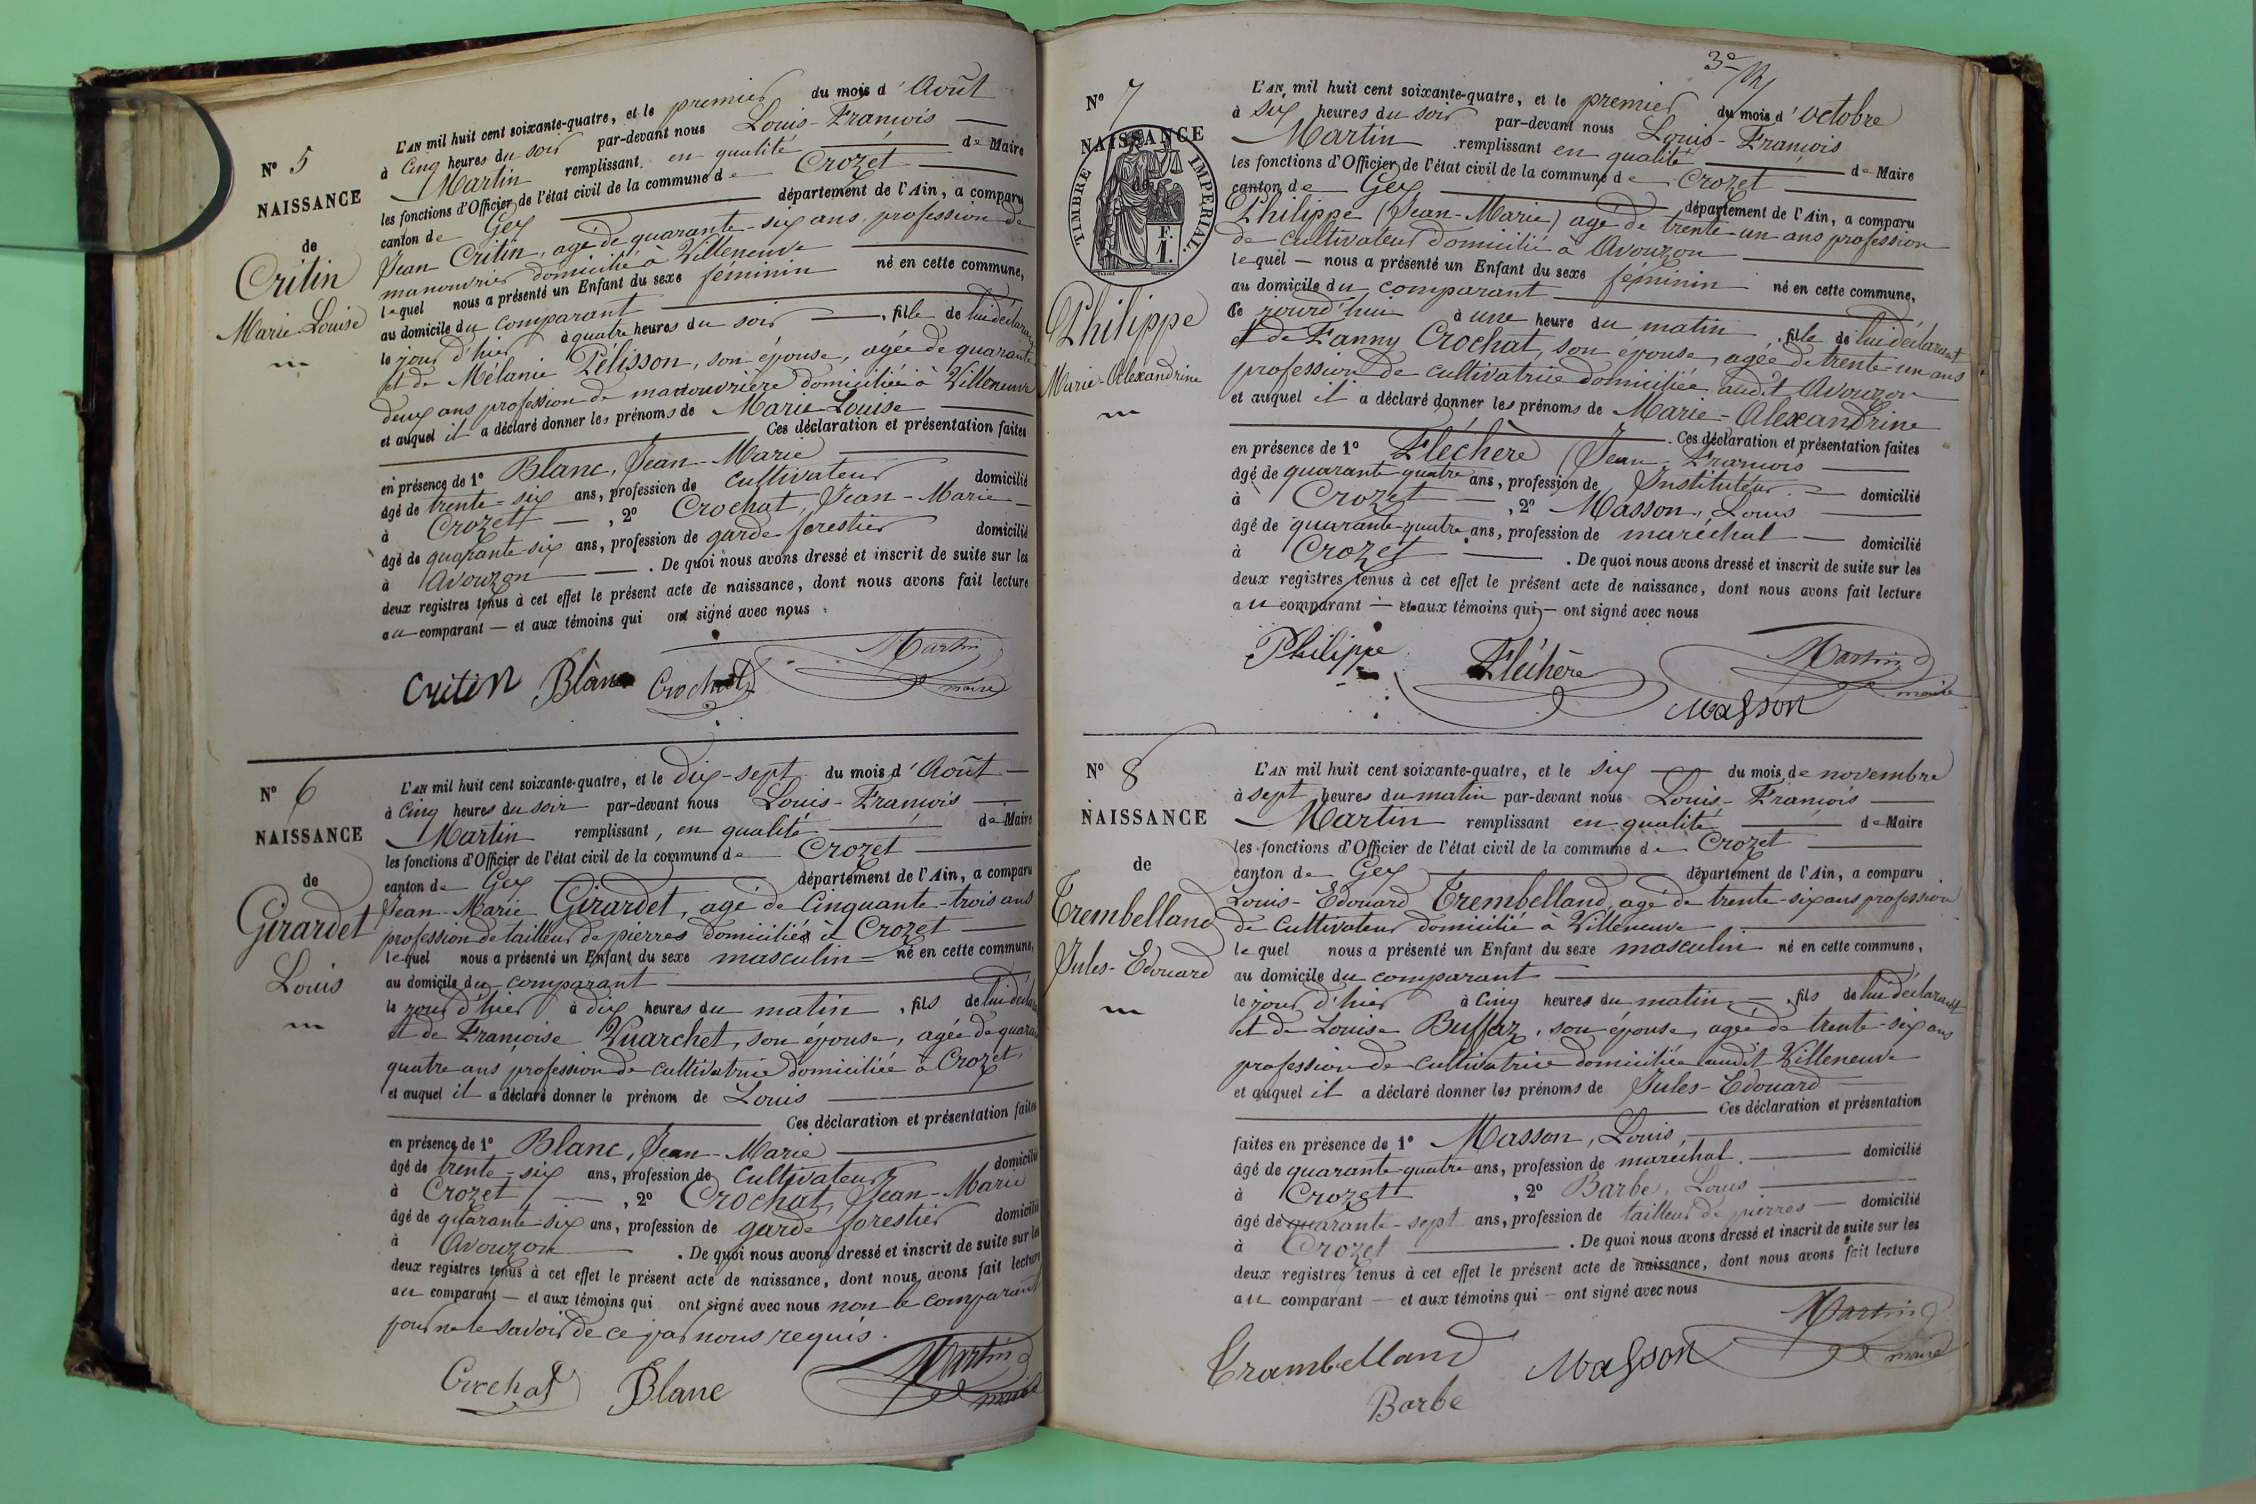 N° 5
NAISSANCE
de
Critin
Marie-Louise
L'AN mil huit cent soixante-quatre, et le premier du mois d'Août
à cinq heures du soir par-devant nous Louis-François
Martin remplissant en qualité de Maire
les fonctions d'Officier de l'état civil de la commune de Crozet
canton de Gex département de l'Ain, a comparu
Jean Critin, agé de quarante-six ans, profession de
manouvrier domicilié à Villeneuve
lequel nous a présenté un Enfant du sexe féminin né en cette commune,
au domicile du comparant
le jour d'hier à quatre heures du soir, fille de lui déclarant
et de Mélanie Pélisson, son épouse, agée de quarante
deux ans profession de manouvrière domiciliée à Villeneuve
et auquel il a déclaré donner les prénoms de Marie-Louise
Ces déclaration et présentation faites
en présence de 1° Blanc, Jean-Marie
âgé de trente-six ans, profession de cultivateur domicilié
à Crozet, 2° Crochat, Jean-Marie
âgé de quarante-six ans, profession de garde forestier domicilié
à Avouzon. De quoi nous avons dressé et inscrit de suite sur les
deux registres tenus à cet effet le présent acte de naissance, dont nous avons fait lecture
au comparant — et aux témoins qui ont signé avec nous.
Martin
maire
Critin Blanc Crochat
N° 6
NAISSANCE
de
Girardet
Louis
L'AN mil huit cent soixante-quatre, et le dix-sept du mois d'Août
à cinq heures du soir par-devant nous Louis-François
Martin remplissant, en qualité de Maire
les fonctions d'Officier de l'état civil de la commune de Crozet
canton de Gex département de l'Ain, a comparu
Jean-Marie Girardet, agé de cinquante-trois ans
profession de tailleur de pierres domicilié à Crozet
lequel nous a présenté un Enfant du sexe masculin né en cette commune,
au domicile du comparant
le jour d'hier à dix heures du matin, fils de lui déclarant
et de Françoise Vuarchet, son épouse, agée de quarante
quatre ans profession de cultivatrice domiciliée à Crozet,
et auquel il a déclaré donner le prénom de Louis
Ces déclaration et présentation faites
en présence de 1° Blanc, Jean-Marie
âgé de trente-six ans, profession de cultivateur domicilié
à Crozet, 2° Crochat, Jean-Marie
âgé de quarante-six ans, profession de garde forestier domicilié
à Avouzon. De quoi nous avons dressé et inscrit de suite sur les
deux registres tenus à cet effet le présent acte de naissance, dont nous avons fait lecture
au comparant — et aux témoins qui ont signé avec nous non le comparant
pour ne le savoir de ce par nous requis.
Martin
maire
Crochat Blanc
N° 7
NAISSANCE
de
TIMBRE IMPÉRIAL.
F.
1.
Philippe
Marie-Alexandrine
L'AN mil huit cent soixante-quatre, et le premier du mois d'octobre
à six heures du soir par-devant nous Louis-François
Martin remplissant en qualité de Maire
les fonctions d'Officier de l'état civil de la commune de Crozet
canton de Gex département de l'Ain, a comparu
Philippe (Jean-Marie) agé de trente-un ans profession
de cultivateur domicilié à Avouzon
lequel — nous a présenté un Enfant du sexe féminin né en cette commune,
au domicile du comparant
Ce jourd'hui à une heure du matin, fille de lui déclarant
et de Fanny Crochat, son épouse, agée de trente-un ans
profession de cultivatrice domiciliée audit Avouzon
et auquel il a déclaré donner les prénoms de Marie-Alexandrine
Ces déclaration et présentation faites
en présence de 1° Fléchère (Jean-François
âgé de quarante quatre ans, profession de Instituteur domicilié
à Crozet, 2° Masson, Louis
âgé de quarante-quatre ans, profession de maréchal domicilié
à Crozet. De quoi nous avons dressé et inscrit de suite sur les
deux registres tenus à cet effet le présent acte de naissance, dont nous avons fait lecture
au comparant — et aux témoins qui — ont signé avec nous
Philippe Fléchère Martin
maire
Masson
N° 8
NAISSANCE
de
Trembelland
Jules-Edouard
L'AN mil huit cent soixante-quatre, et le six du mois de novembre
à sept heures du matin par-devant nous Louis-François
Martin remplissant en qualité de Maire
les fonctions d'Officier de l'état civil de la commune de Crozet
canton de Gex département de l'Ain, a comparu
Louis-Edouard Trembelland, agé de trente-six ans profession
de cultivateur domicilié à Villeneuve
lequel nous a présenté un Enfant du sexe masculin né en cette commune,
au domicile du comparant
le jour d'hier à cinq heures du matin, fils de lui déclarant
et de Louise Buffaz, son épouse, agée de trente-six ans
profession de cultivatrice domiciliée audit Villeneuve
et auquel il a déclaré donner les prénoms de Jules-Edouard
Ces déclaration et présentation
faites en présence de 1° Masson, Louis,
âgé de quarante-quatre ans, profession de maréchal domicilié
à Crozet, 2° Barbe, Louis
âgé de quarante-sept ans, profession de tailleur de pierres domicilié
à Crozet. De quoi nous avons dressé et inscrit de suite sur les
deux registres tenus à cet effet le présent acte de naissance, dont nous avons fait lecture
au comparant — et aux témoins qui — ont signé avec nous
Martin
maire
Trambelland Masson
Barbe